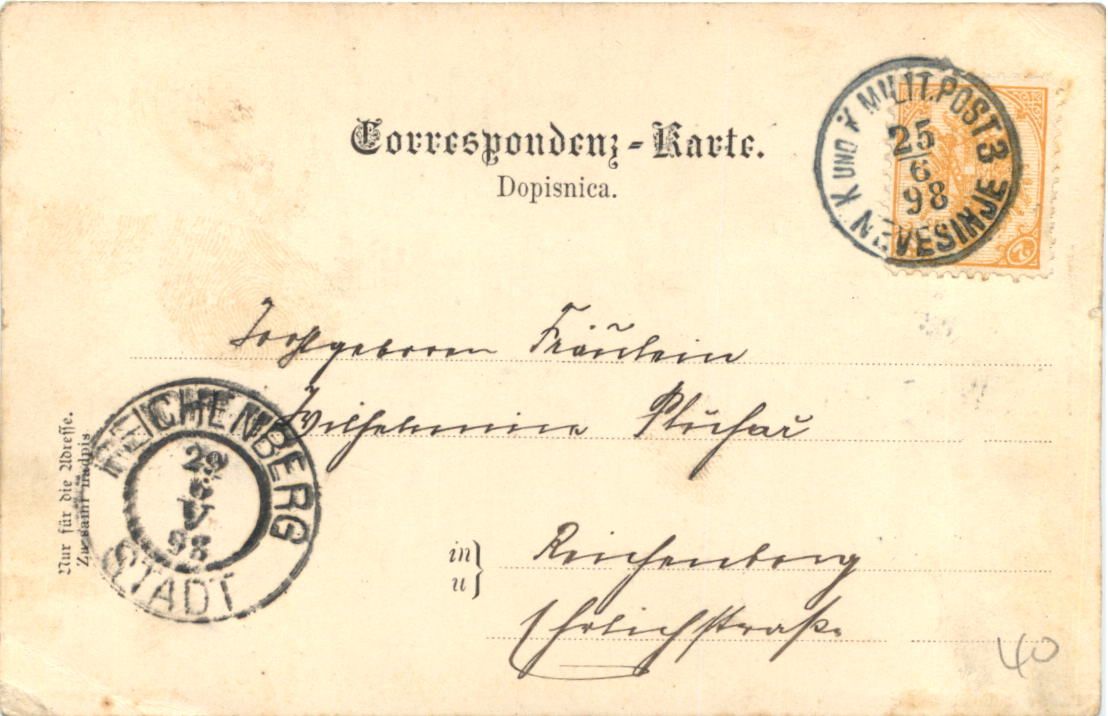 Correspondenz-Karte.
Dopisnica.
K UND K MILIT. POST 3
25
6
98
NEVESINJE
2
Hochgeboren Fräulein
Wilhelmine Pluhar
Nur für die Adresse.
Za samu nadpis
REICHENBERG
29
6
V
98
STADT
in
u
Reichenberg
Ehrlichstraße
40